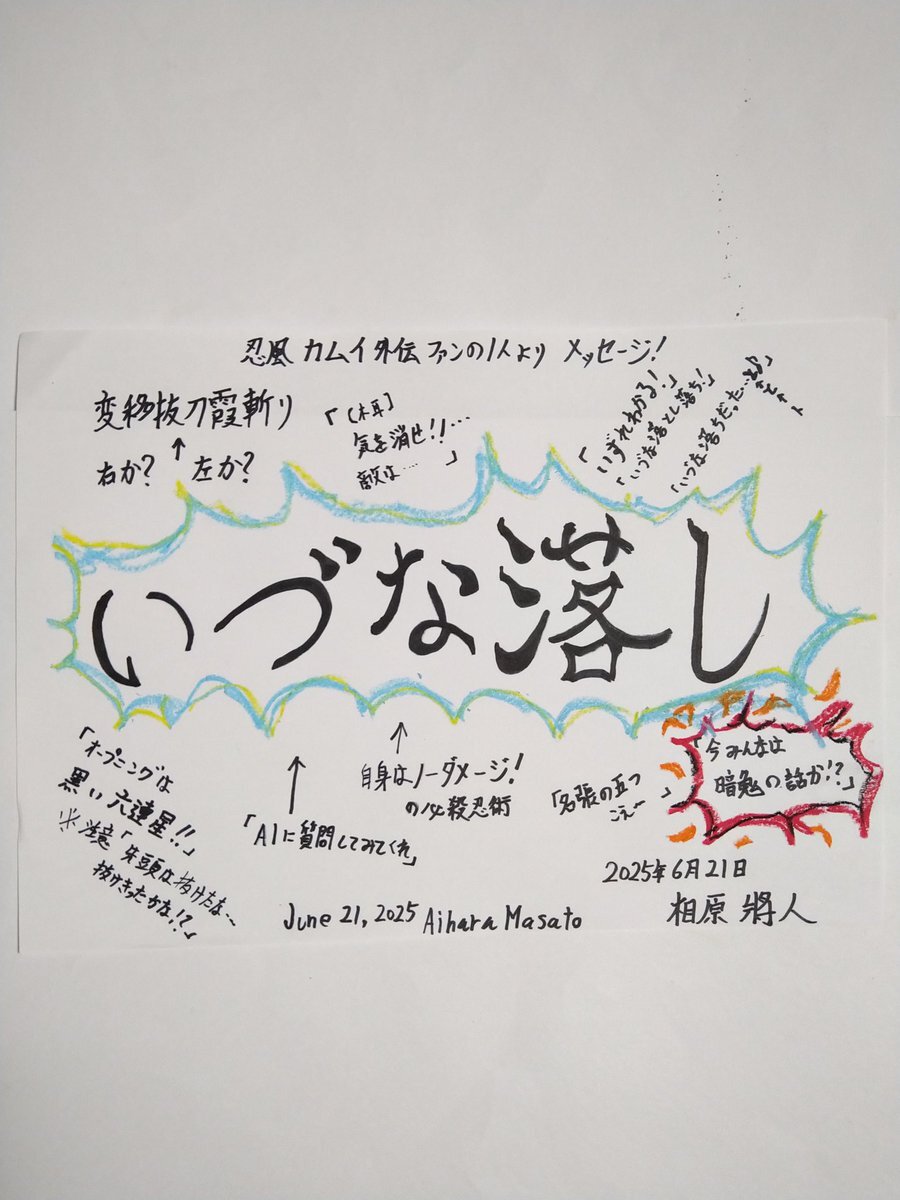 忍風 カムイ外伝 ファンの1人より メッセージ!
変移抜刀霞斬り
↑
右か? 左か?
「(木耳)
気を消せ!!…
敵は…」
「いずれわかる!」
「いづな落とし落ち!」
「いづな落ちだった…
いづな落し
「オープニングは
黒い六連星!!」
「朱頭は抜けたな…
抜けきったかな!?」
↑
「AIに質問してみてくれ」
↑
自身はノーダメージ!
の必殺忍術
「名張の五つ
こえー」
「今みんなは
暗鬼の話か!?」
2025年6月21日
相原 將人
June 21, 2025 Aihara Masato